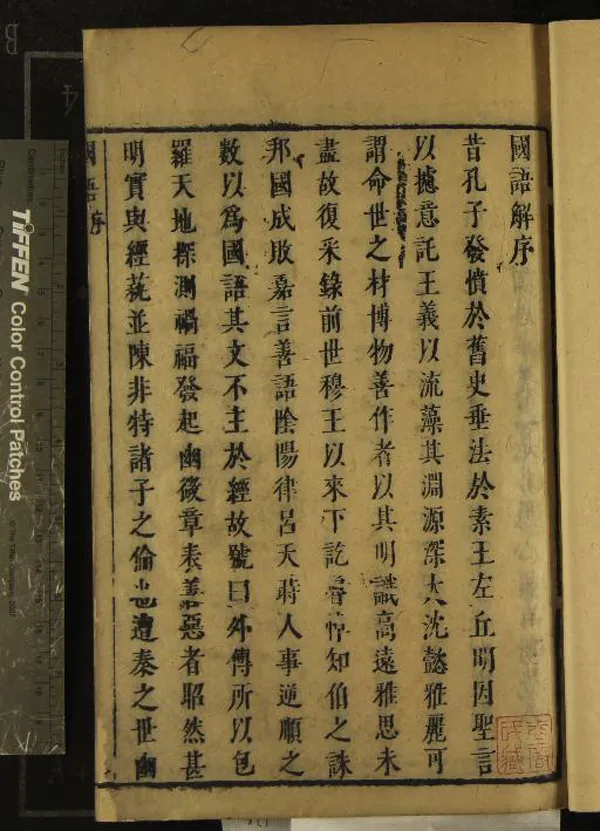 國語解序
昔孔子發憤於舊史垂法於素王左丘明因聖言
以攄意託王義以流藻其淵源深大沈懿雅麗可
謂命世之材博物善作者以其明識高遠雅思未
盡故復采錄前世穆王以來下訖魯悼知伯之誅
邦國成敗嘉言善語陰陽律呂天時人事逆順之
數以爲國語其文不主於經故號曰外傳所以包
羅天地探測禍福發起幽微章表善惡者昭然甚
明實與經藝並陳非特諸子之倫也遭秦之世幽
國語序
TIFFEN Color Control Patches
B
4